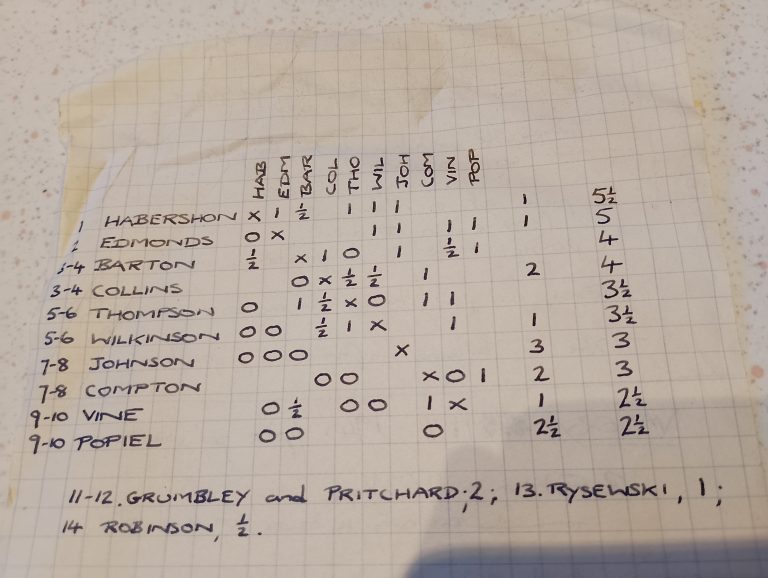 HAB EDM BAR COL THO WIL JOH COM VIN POP
1 HABERSHON x 1 ½ 1 1 1 1 5½
2 EDMONDS 0 x 1 1 1 1 1 5
3-4 BARTON ½ x 1 0 1 ½ 1 4
3-4 COLLINS 0 x ½ ½ 1 2 4
5-6 THOMPSON 0 1 ½ x 0 1 1 3½
5-6 WILKINSON 0 0 ½ 1 x 1 1 3½
7-8 JOHNSON 0 0 0 x 3 3
7-8 COMPTON 0 0 x 0 1 2 3
9-10 VINE 0 ½ 0 0 1 x 1 2½
9-10 POPIEL 0 0 0 2½ 2½
11-12. GRUMBLEY and PRITCHARD, 2; 13. RYSEWSKI, 1;
14 ROBINSON, ½.